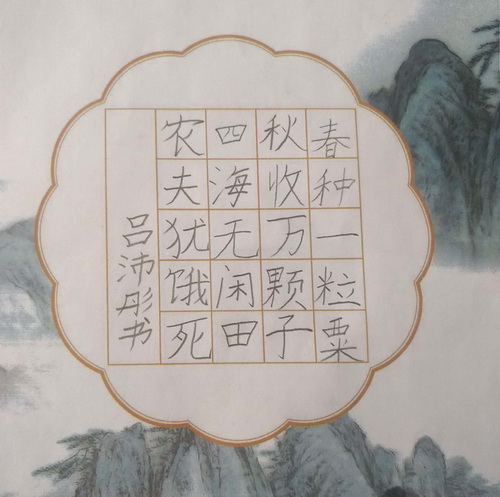 春种一粒粟
秋收万颗子
四海无闲田
农夫犹饿死
吕沛彤书